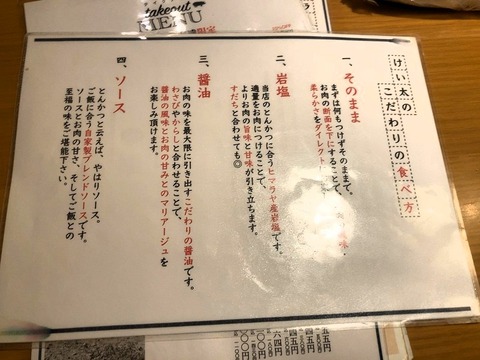 takeout
MENU
けい太の
こだわりの食べ方
一、そのまま
まずは何もつけずそのままで、
お肉の断面を下にすることで、
柔らかさをダイレクト
味・
二、岩塩
当店のとんかつに合うヒマラヤ産岩塩です。
適量をお肉につけることで、
よりお肉の旨味と甘味が引き立ちます。
すだちと合わせても◎
三、醤油
お肉の味を最大限に引き出すこだわりの醤油です。
わさびやからしと合わせることで、
醤油の風味とお肉の甘みとのマリアージュを
お楽しみ頂けます。
四、ソース
とんかつと云えば、やはりソース。
ご飯に合う自家製ブレンドソースです。
ソースとお肉の甘さ、そしてご飯との
至福の味をご堪能下さい。